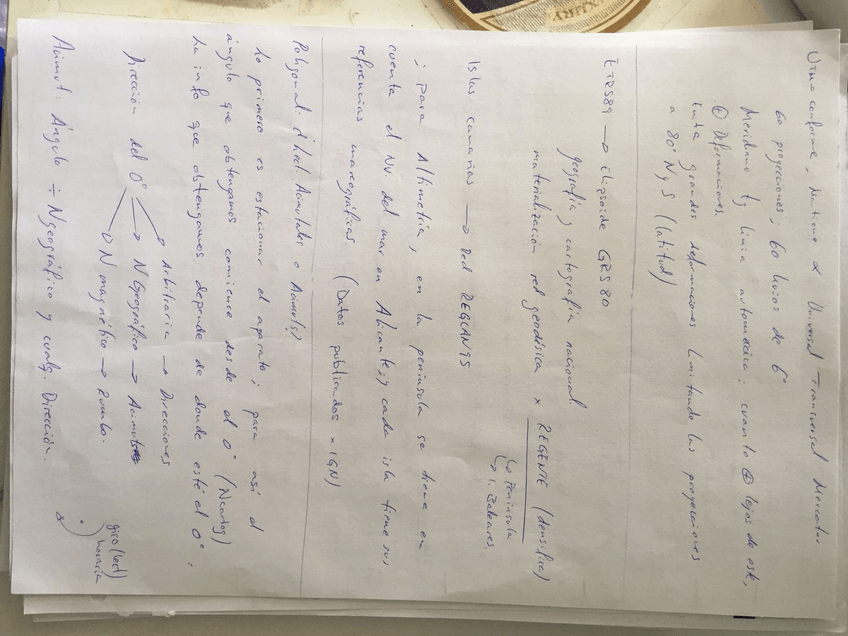 UTM → conforme, Universal Transversal Mercator
60 proyecciones, 60 husos de 6º
Meridiano tg línea automecoica; cuanto ⊕ lejos de este,
⊕ Deformaciones.
Evita grandes deformaciones limitando las proyecciones
a 80º N y S (latitud)
ETRS89 → Elipsoide GRS80
geografía y cartografía nacional.
materialización red geodésica x REGENTE (densifica)
↳ Península
↳ I. Baleares.
Islas Canarias → Red REGCAN95
; para Altimetría, en la península se tiene en
cuenta el Nv del mar en Alicante, y cada isla tiene sus
referencias mareográficas (Datos publicados x IGN)
Poligonal: d Lect Acimutales o Acimut(s)
Lo primero es estacionar el aparato; para así el
ángulo que obtengamos comience desde el 0º
La info que obtengamos depende de donde esté el 0º,
Dirección del 0º
→ Arbitraria → Direcciones
→ N Geográfico → Acimutes
→ N magnético → Rumbo.
Acimut: Ángulo ÷ N geográfico y cualq. Dirección.
giro (lect)
horaria